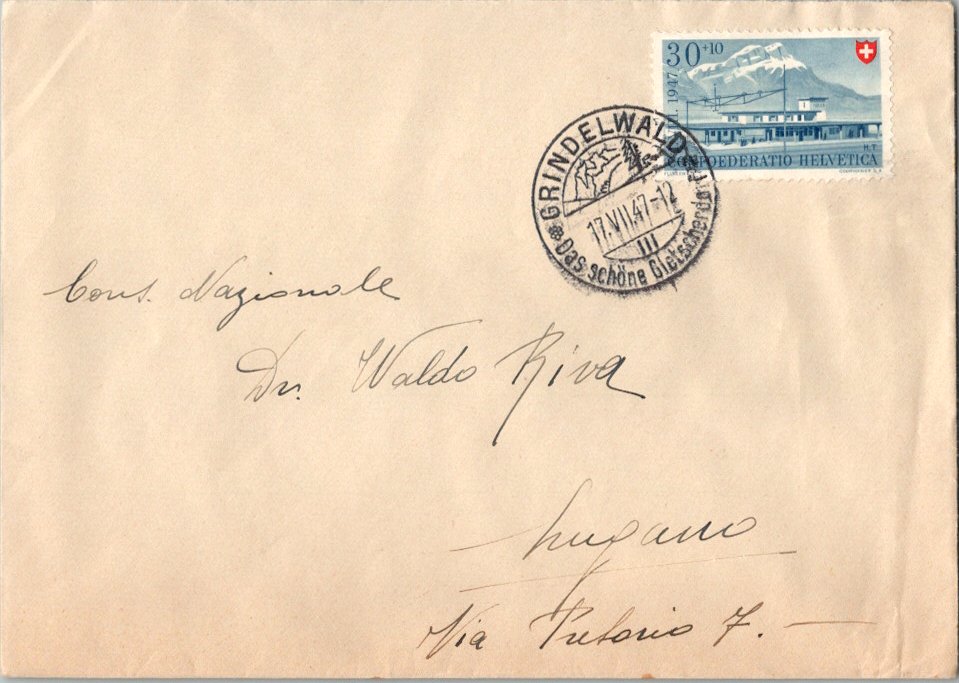 30+10
1947
CONFOEDERATIO HELVETICA
H.T.
COURVOISIER S.A.
GRINDELWALD
17.VII.47-12
Das schöne Gletscherdorf
Cons. Nazionale
Dr. Waldo Riva
Lugano
Via Pretorio 7.